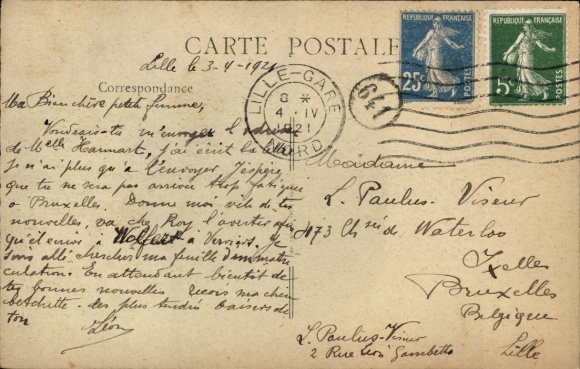 CARTE POSTALE
Lille le 3-4-1921
Correspondance
Ma Bien chère petite femme,
Voudrais-tu m'envoyer l'adresse
de Melle Hannart, j'ai écrit la lettre
je n'ai plus qu'à l'envoyer. J'espère
que tu ne sera pas arrivée trop fatiguée
à Bruxelles. Donne moi vite de tes
nouvelles, va chez Roy l'avertir afin
qu'il envoie à Wolfert à Verviers. Je
suis allé chercher ma feuille d'immatri
culation. En attendant bientôt de
tes bonnes nouvelles reçois ma chère
les plus tendres baisers de
ton
Léon
RÉPUBLIQUE FRANÇAISE
25c
POSTES
RÉPUBLIQUE FRANÇAISE
5c
POSTES
LILLE-GARE
8 *
4 IV
21
NORD
641
Madame
L. Paulus-Viseur
473 Ch sée de Waterloo
Ixelles
Bruxelles
Belgique
L. Paulus-Viseur
2 Rue Léon Gambetta
Lille